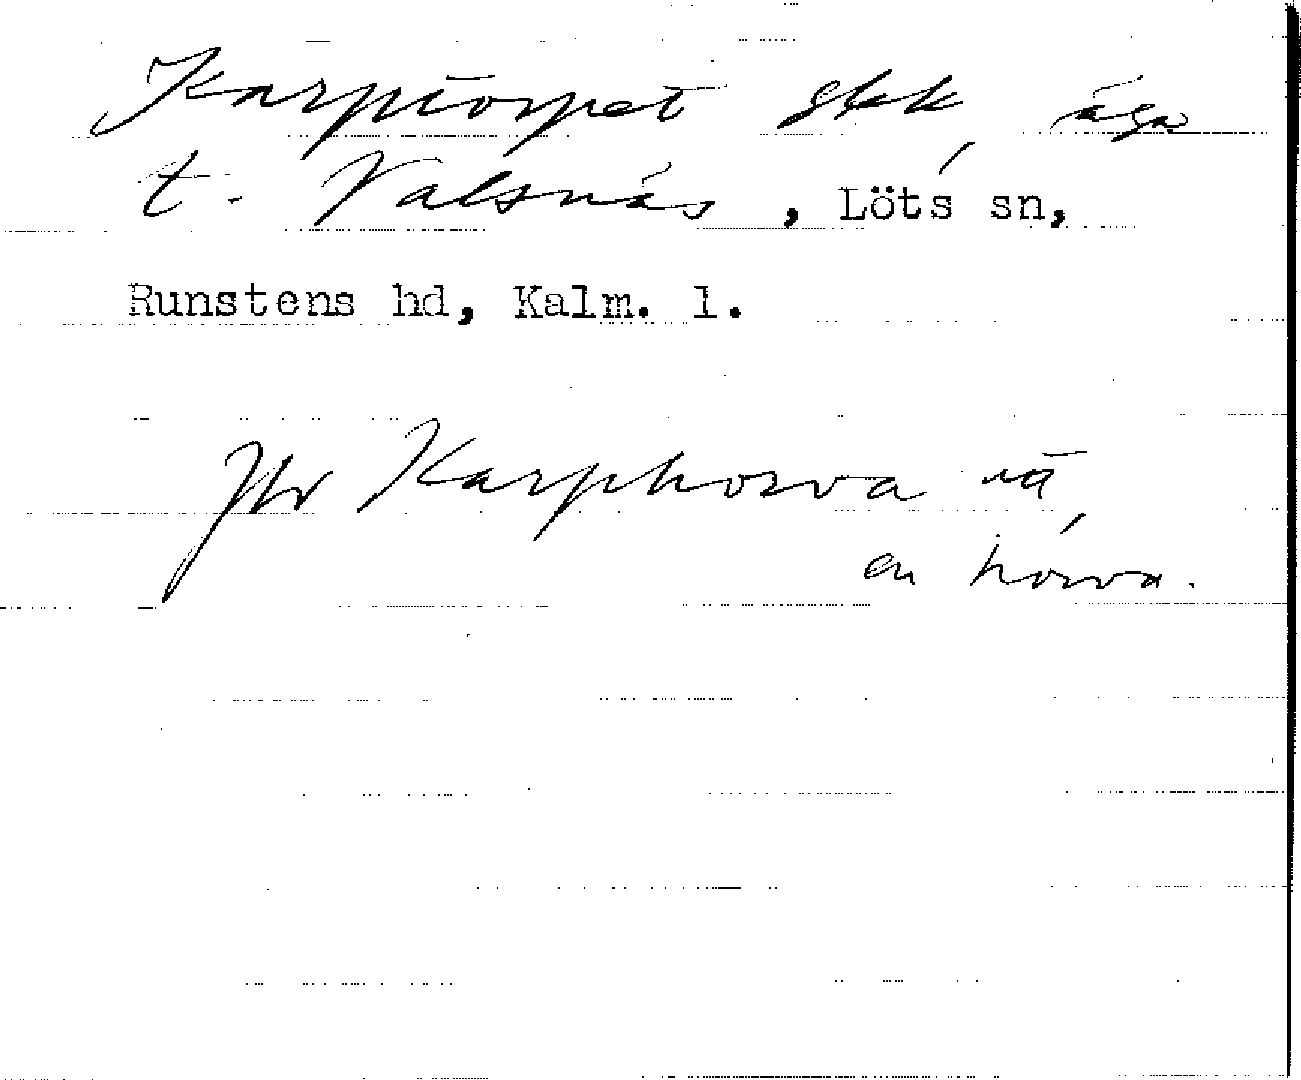 Karptorpet sbk, äga
t. Valsnäs, Löts sn,
Runstens hd, Kalm. l.
Jfr Karphorva nä,
en horva.